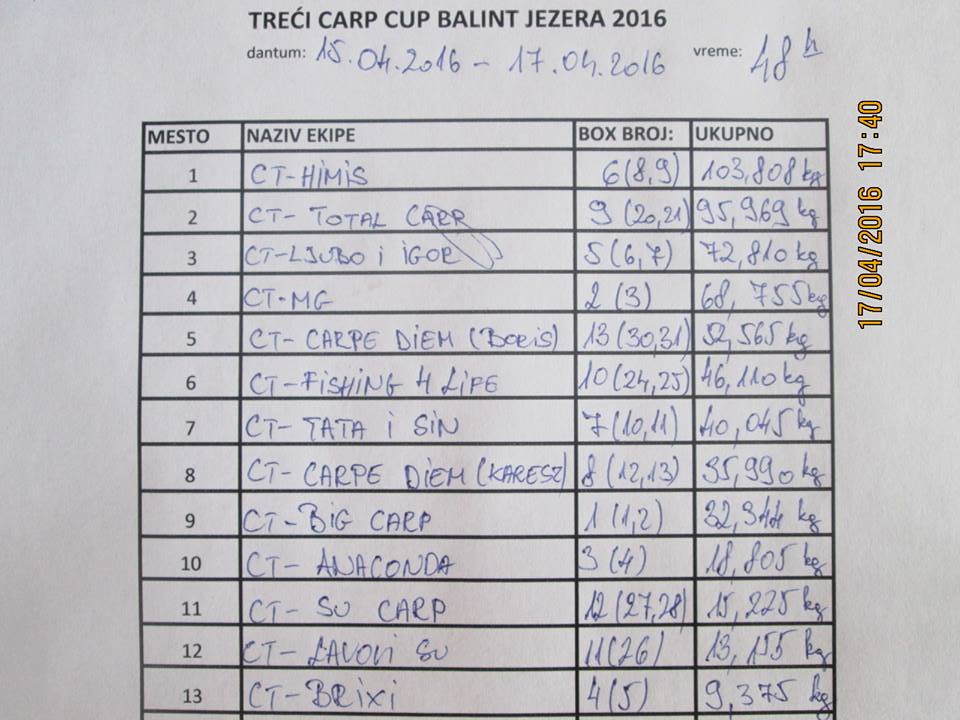 TREĆI CARP CUP BALINT JEZERA 2016
dantum: 15.04.2016 - 17.04.2016 vreme: 48 h
MESTO NAZIV EKIPE BOX BROJ: UKUPNO
1 CT-HIMIS 6(8,9) 103,808 kg
2 CT- TOTAL CARP 9 (20,21) 95,969 kg
3 CT-LJUBO i IGOR 5(6,7) 72,810 kg
4 CT-MG 2 (3) 68,755 kg
5 CT- CARPE DIEM (Boris) 13(30,31) 52,565 kg
6 CT-FISHING 4 LIFE 10(24,25) 46,110 kg
7 CT- TATA i SIN 7(10,11) 40,045 kg
8 CT- CARPE DIEM (KARESZ) 8(12,13) 35,990 kg
9 CT-BIG CARP 1(1,2) 32,344 kg
10 CT- ANACONDA 3(4) 18,805 kg
11 CT- SU CARP 12(27,28) 15,225 kg
12 CT- LAVOVI SU 11(26) 13,155 kg
13 CT-BRIXI 4(5) 9,375 kg
17/04/2016 17:40